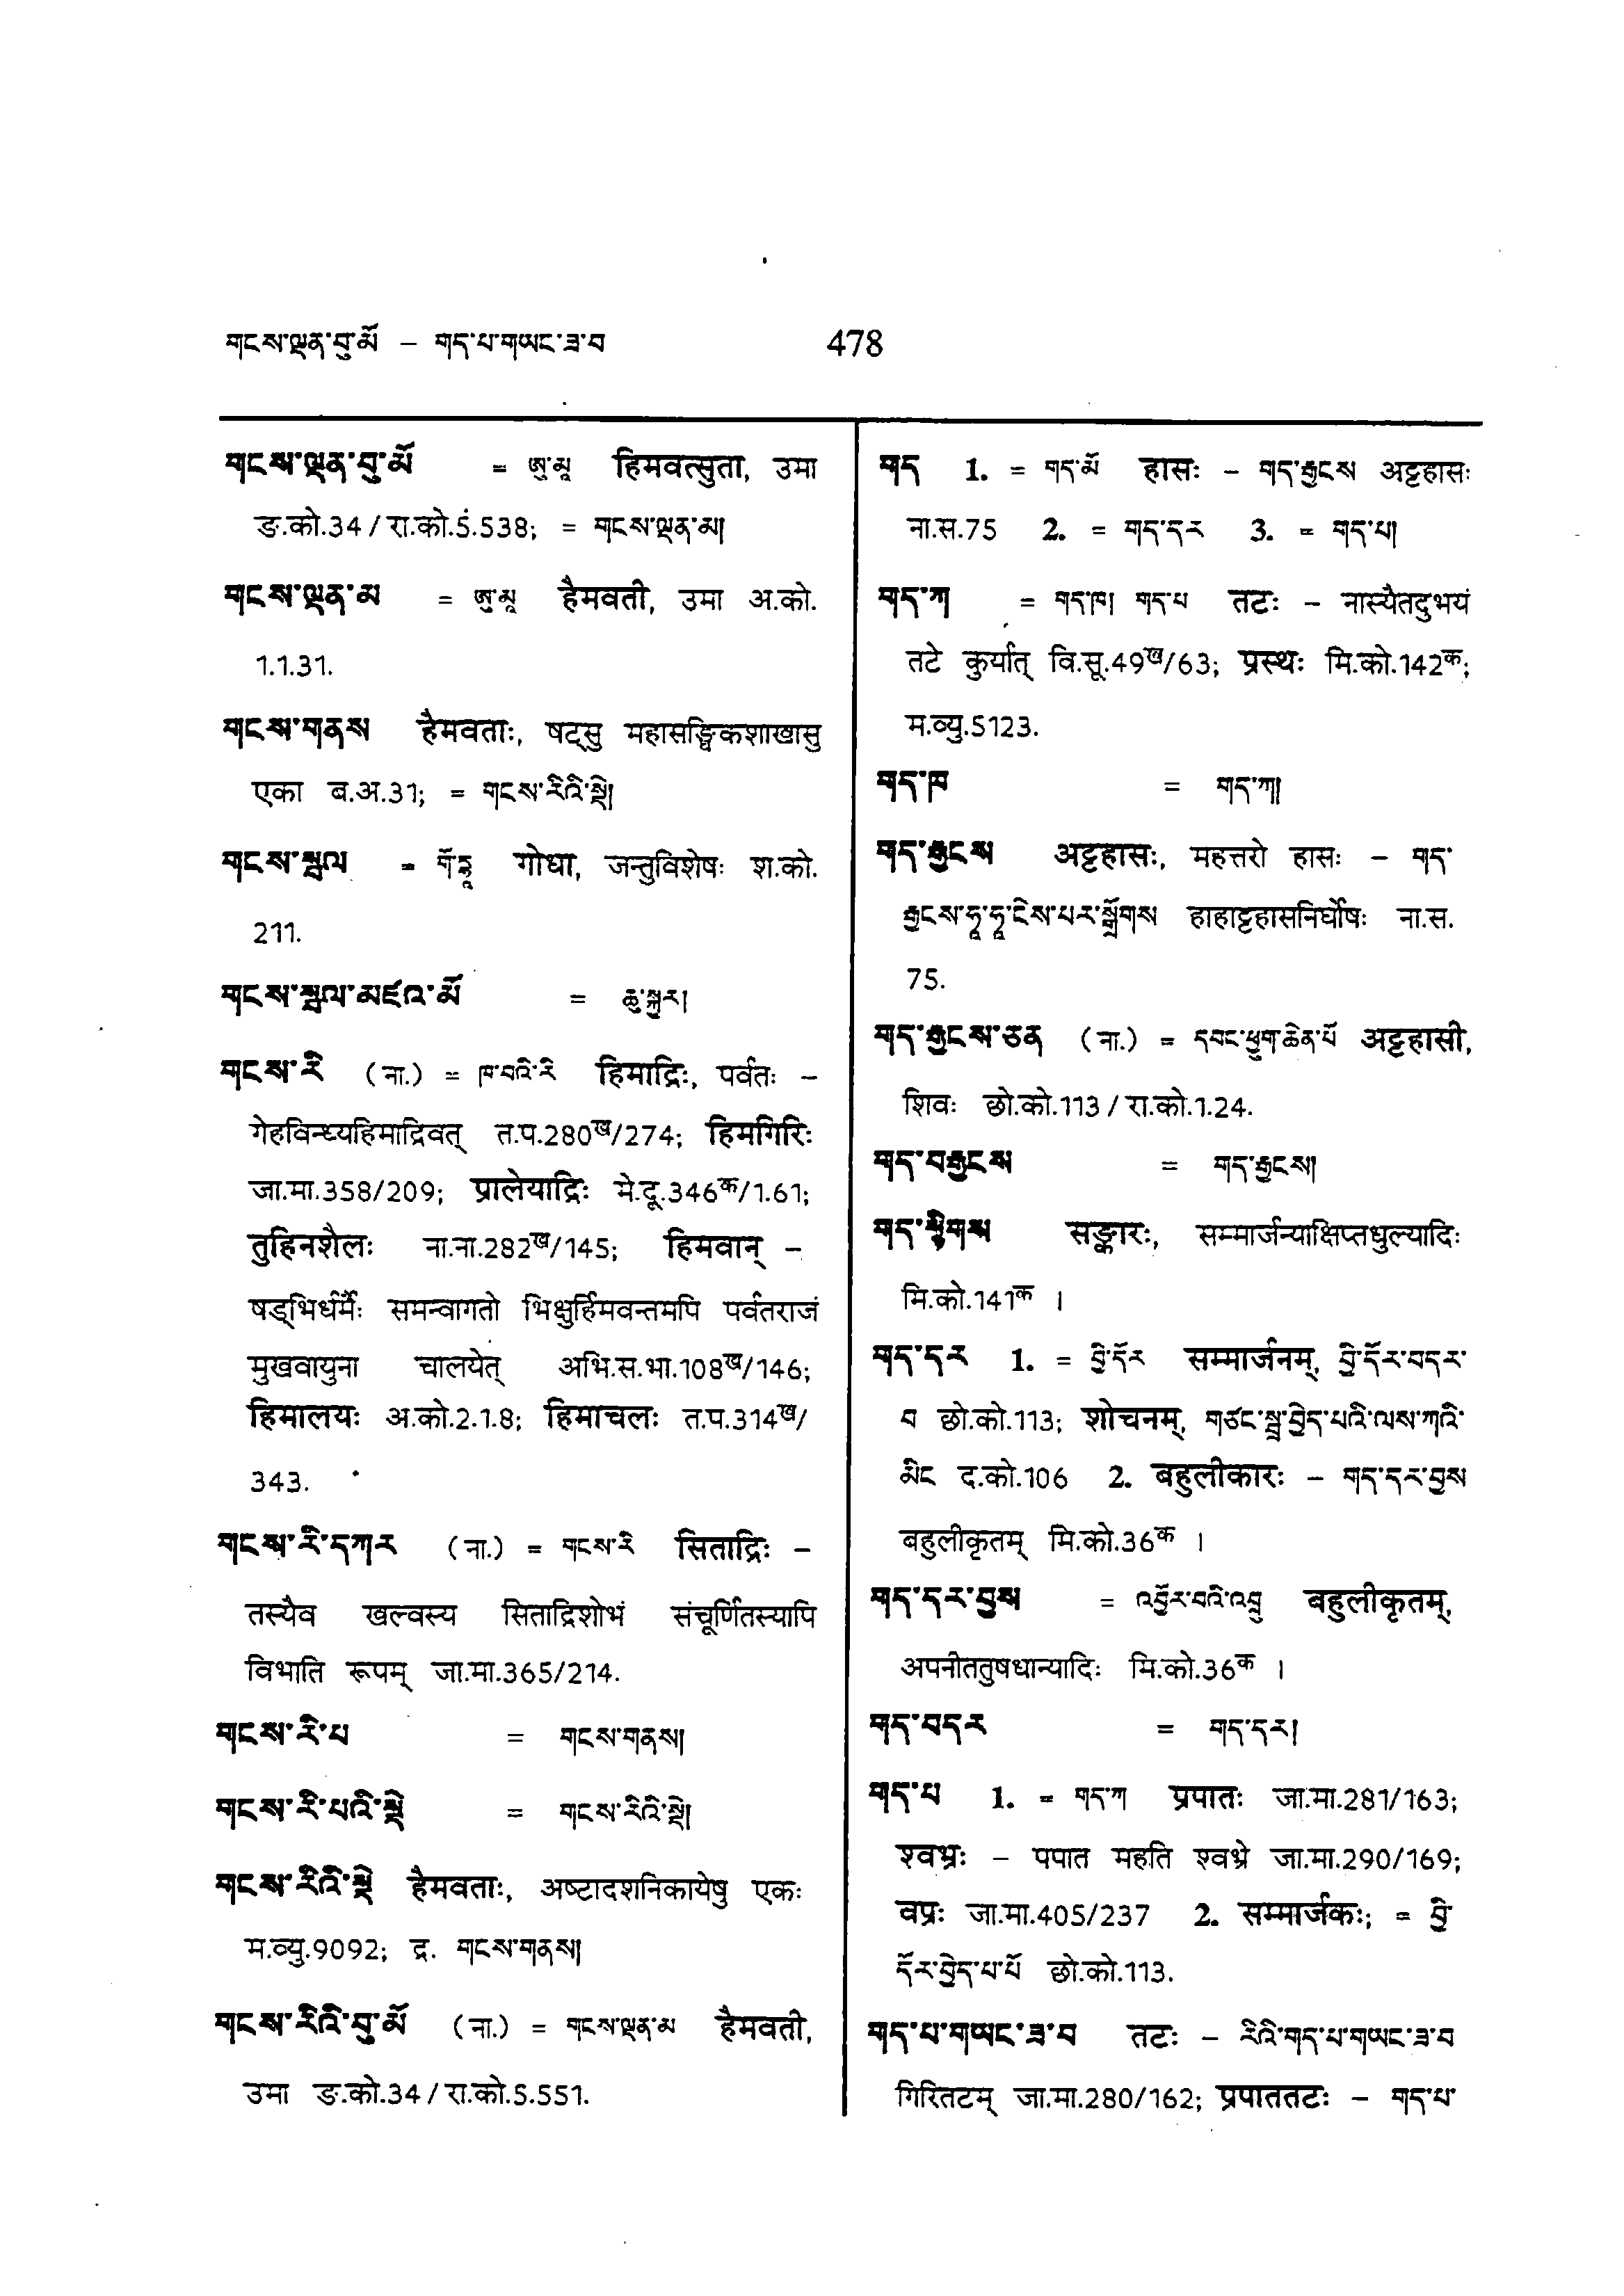 གངས་ལྡན་བུ་མོ – གད་པ་གཡང་ཟ་བ 478
གངས་ལྡན་བུ་མོ = ཨུ་མཱ हिमवत्सुता, उमा
ङ.को.34 / रा.को.5.538; = གངས་ལྡན་མ།
གངས་ལྡན་མ = ཨུ་མཱ हैमवती, उमा अ.को.
1.1.31.
གངས་གནས हैमवताः, षट्सु महासङ्घिकशाखासु
एका ब.अ.31; = གངས་རིའི་སྡེ།
གངས་སྦལ = གོ་དྷཱ गोधा, जन्तुविशेषः श.को.
211.
གངས་སྦལ་མཛའ་མོ = ཆུ་སྐྱུར།
གངས་རི (ना.) = ཁ་བའི་རི हिमाद्रिः, पर्वतः –
गेहविन्ध्यहिमाद्रिवत् त.प.280ख/274; हिमगिरिः
जा.मा.358/209; प्रालेयाद्रिः मे.दू.346क/1.61;
तुहिनशैलः ना.ना.282ख/145; हिमवान् –
षड्भिर्धर्मैः समन्वागतो भिक्षुर्हिमवन्तमपि पर्वतराजं
मुखवायुना चालयेत् अभि.स.भा.108ख/146;
हिमालयः अ.को.2.1.8; हिमाचलः त.प.314ख/
343.
གངས་རི་དཀར (ना.) = གངས་རི सिताद्रिः –
तस्यैव खल्वस्य सिताद्रिशोभं संचूर्णितस्यापि
विभाति रूपम् जा.मा.365/214.
གངས་རི་པ = གངས་གནས།
གངས་རི་པའི་སྡེ = གངས་རིའི་སྡེ།
གངས་རིའི་སྡེ हैमवताः, अष्टादशनिकायेषु एकः
म.व्यु.9092; द्र. གངས་གནས།
གངས་རིའི་བུ་མོ (ना.) = གངས་ལྡན་མ हैमवती,
उमा ङ.को.34 / रा.को.5.551.
གད 1. = གད་མོ हासः – གད་རྒྱངས अट्टहासः
ना.स.75 2. = གད་དར 3. = གད་པ།
གད་ཀ = གད་ཁ། གད་པ तटः – नास्यैतदुभयं
तटे कुर्यात् वि.सू.49ख/63; प्रस्थः मि.को.142क;
म.व्यु.5123.
གད་ཁ = གད་ཀ།
གད་རྒྱངས अट्टहासः, महत्तरो हासः – གད་
རྒྱངས་ཧཱ་ཧཱ་ངེས་པར་སྒྲོགས हाहाट्टहासनिर्घोषः ना.स.
75.
གད་རྒྱངས་ཅན (ना.) = དབང་ཕྱུག་ཆེན་པོ अट्टहासी,
शिवः छो.को.113 / रा.को.1.24.
གད་བརྒྱངས = གད་རྒྱངས།
གད་སྙིགས सङ्कारः, सम्मार्जन्याक्षिप्तधुल्यादिः
मि.को.141क ।
གད་དར 1. = བྱི་དོར सम्मार्जनम्, བྱི་དོར་བདར་
བ छो.को.113; शोचनम्, གཙང་སྦྲ་བྱེད་པའི་ལས་ཀའི་
མིང द.को.106 2. बहुलीकारः – གད་དར་བྱས
बहुलीकृतम् मि.को.36क ।
གད་དར་བྱས = འབྱོར་བའི་འབྲུ बहुलीकृतम्,
अपनीततुषधान्यादिः मि.को.36क ।
གད་བདར = གད་དར།
གད་པ 1. = གད་ཀ प्रपातः जा.मा.281/163;
श्वभ्रः – पपात महति श्वभ्रे जा.मा.290/169;
वप्रः जा.मा.405/237 2. सम्मार्जकः; = བྱི་
དོར་བྱེད་པ་པོ छो.को.113.
གད་པ་གཡང་ཟ་བ तटः – རིའི་གད་པ་གཡང་ཟ་བ
गिरितटम् जा.मा.280/162; प्रपाततटः – གད་པ་